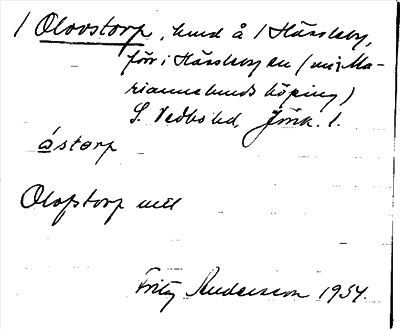 / Olovstorp, hund å / Hässleby,
förr i Hässleby sn (nu Ma-
riannelunds köping)
S. Vedbo hd, Jönk. l.
åstorp
Olofstorp mtl
Fritz Andersson 1954.